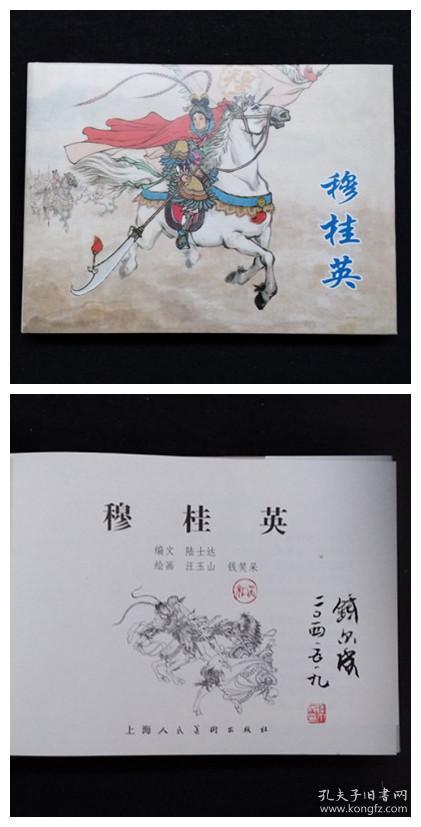 穆
穆桂英
穆桂英
编文 陆士达
绘画 汪玉山 钱笑呆
二〇〇四·五·九
上海人民美术出版社
孔夫子旧书网
www.kongfz.com